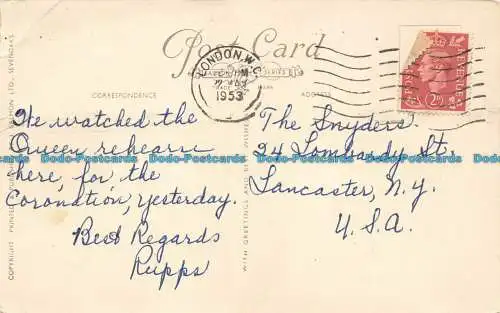 Post Card
LONDON. W.C.
1953
SERIES
TRADE MARK
POSTAGE
REVENUE
2½D
CORRESPONDENCE
ADDRESS
We watched the
Queen rehearse
here, for the
Coronation, yesterday.
Best Regards
Rupps
The Snyders
24 Lombardy St.
Lancaster, N.Y.
U.S.A.
COPYRIGHT PRINTED & PUBLISHED SALMON LTD., SEVENOAKS
WITH GREETINGS AND BEST WISHES
Dodo-Postcards Dodo-Postcards Dodo-Postcards Dodo-Postcards Dodo-Postcards